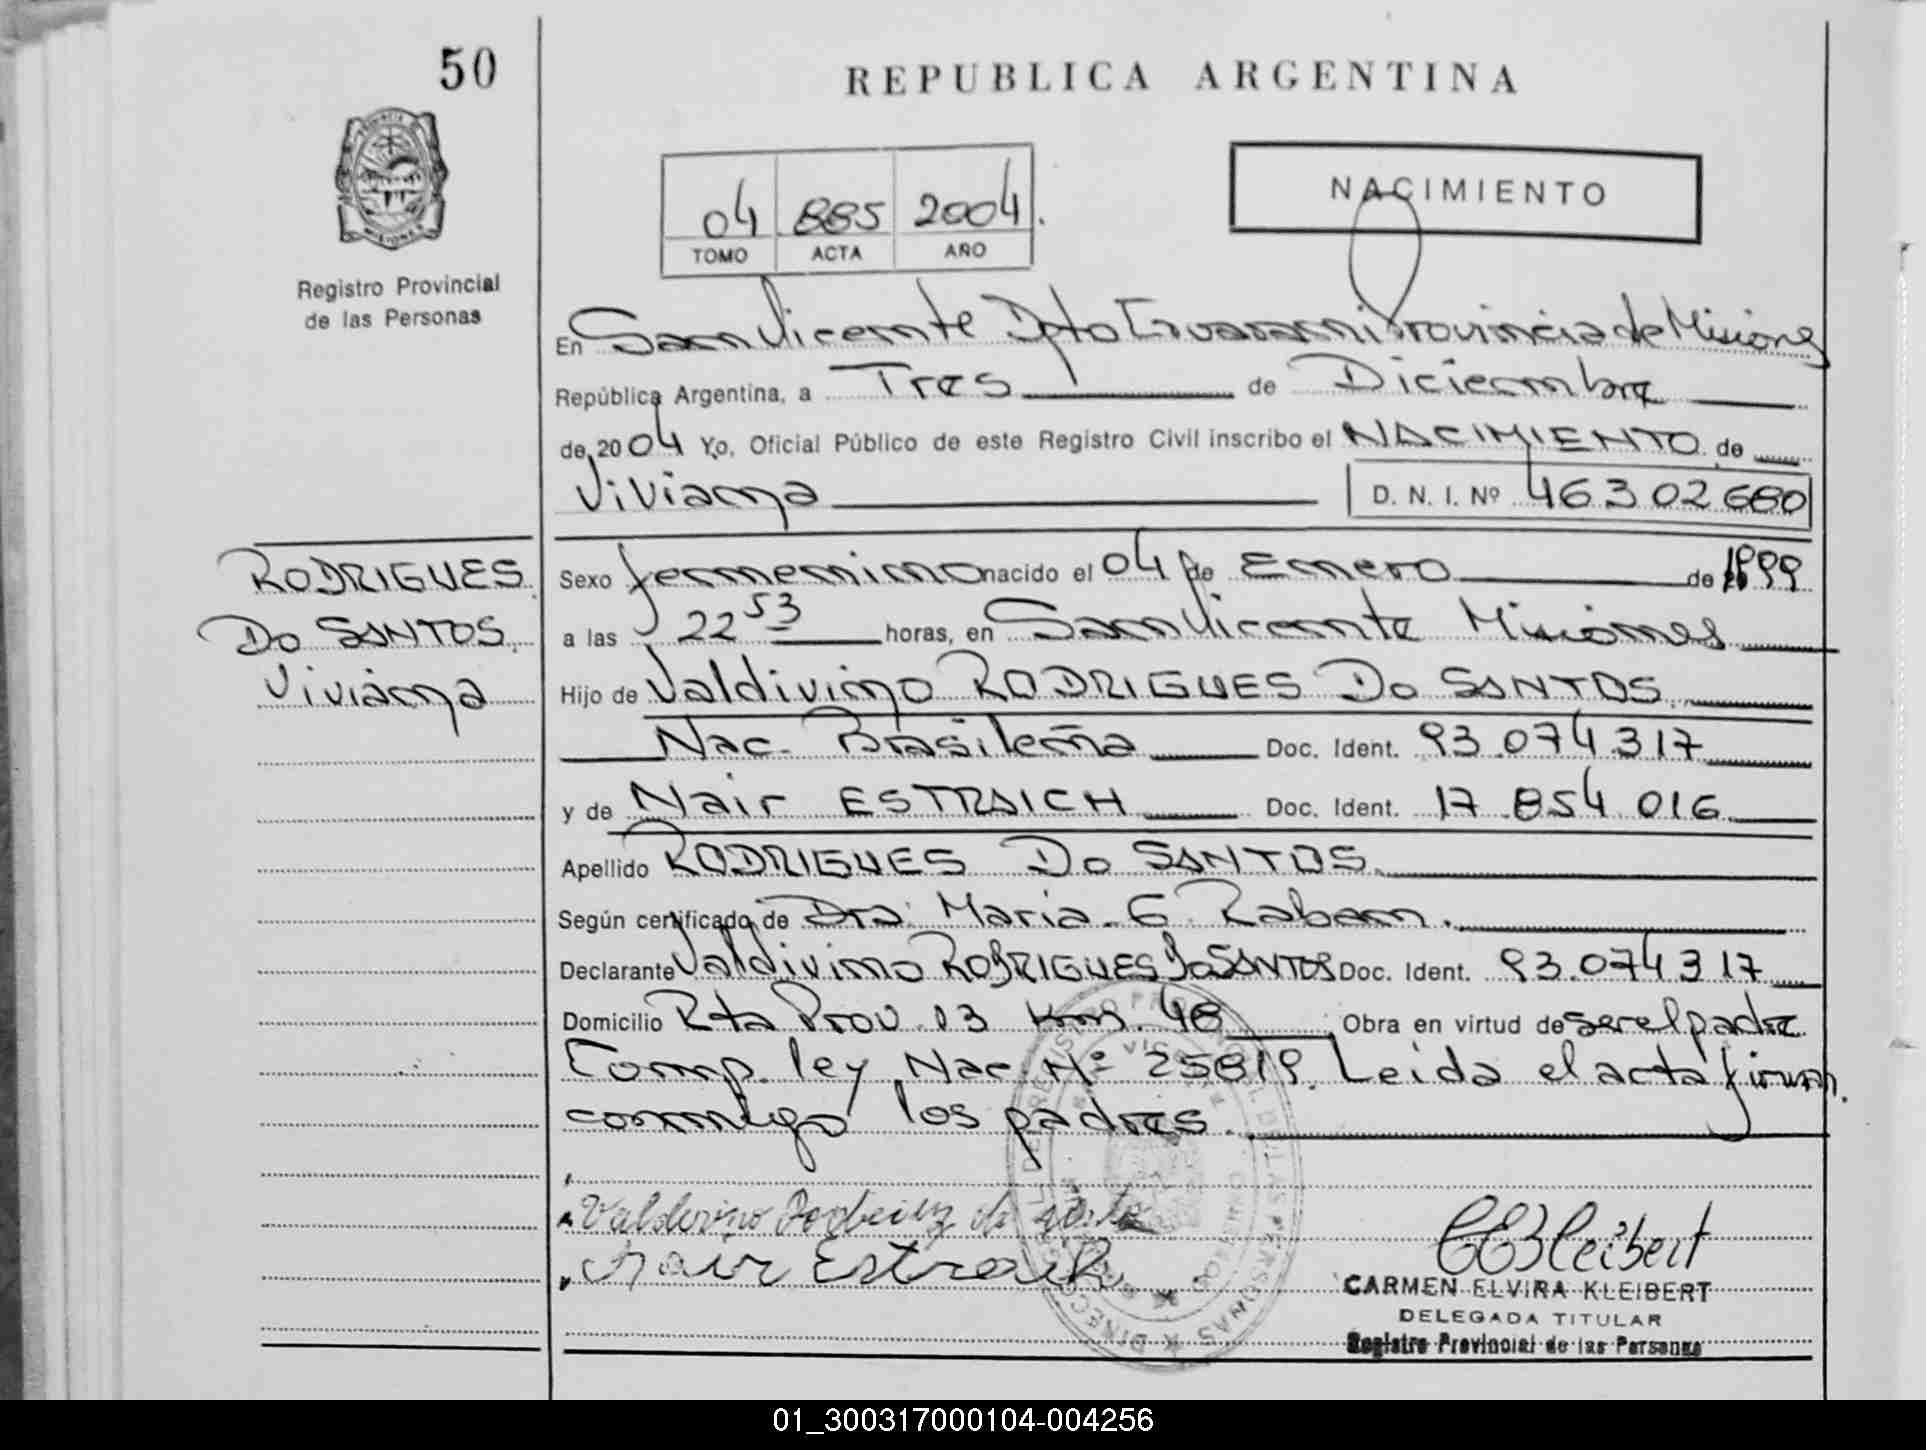 50
REPUBLICA ARGENTINA
NACIMIENTO
04 885 2004.
TOMO ACTA AÑO
Registro Provincial
de las Personas
En San Vicente Dpto Guarani Provincia de Misiones
República Argentina, a Tres de Diciembre
de 2004 Yo, Oficial Público de este Registro Civil inscribo el NACIMIENTO de
Viviana D. N. I. Nº 46.302.680
RODRIGUES
DO SANTOS
Viviana
Sexo femenino nacido el 04 de Enero de 1999
a las 22 53 horas, en San Vicente Misiones
Hijo de Valdivino RODRIGUES DO SANTOS
Nac. Brasileña Doc. Ident. 93.074.317
y de Nair ESTRAICH Doc. Ident. 17.854.016
Apellido RODRIGUES DO SANTOS
Según certificado de Dra. Maria G. Raben.
Declarante Valdivino RODRIGUES Do SANTOS Doc. Ident. 93.074.317
Domicilio Rta Prov. 13 Km. 48 Obra en virtud de ser el padre
Comp. ley Nac. Nº 25819. Leida el acta firman
conmigo los padres.
Nair Estraich
CEKleibert
CARMEN ELVIRA KLEIBERT
DELEGADA TITULAR
Registro Provincial de las Personas
01_300317000104-004256